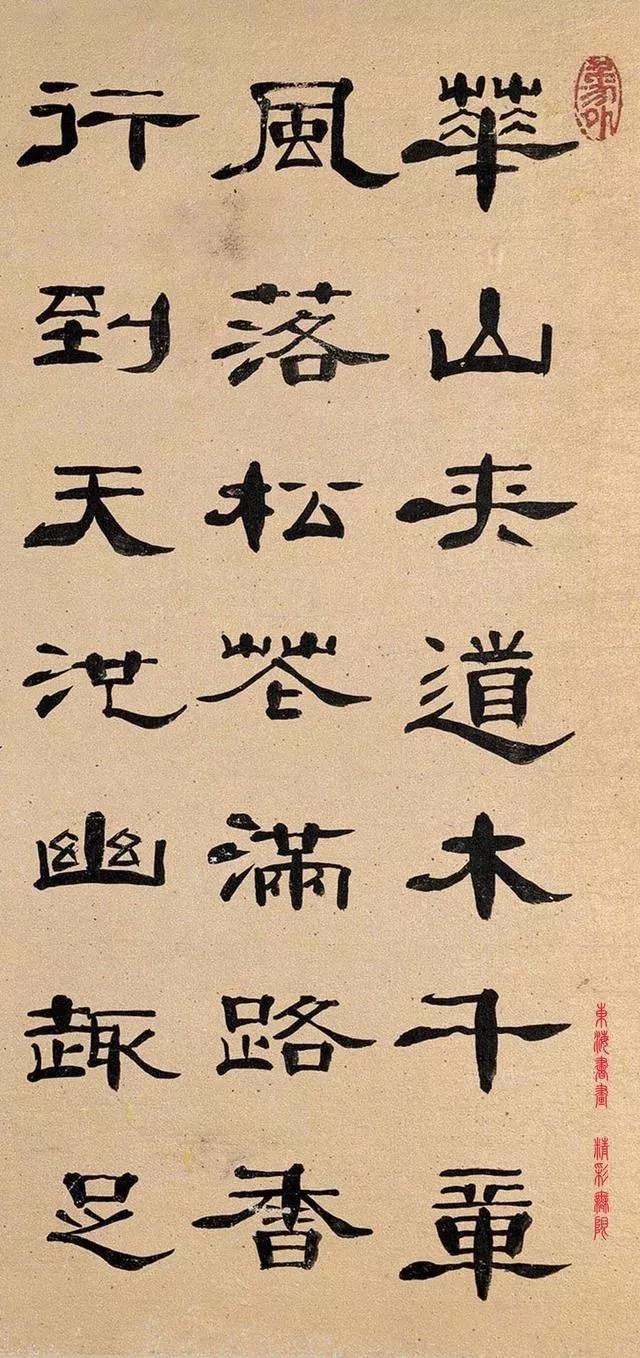 華山夾道木千章
風落松花滿路香
行到天池幽趣足
東海書畫 精彩無限